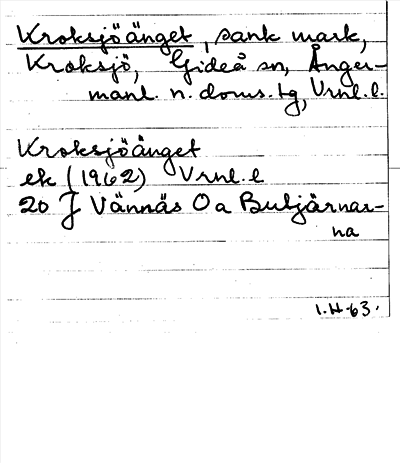 Kroksjöänget, sank mark,
Kroksjö, Gideå sn, Ånger-
manl. n. doms.tg, Vrnl.l.
Kroksjöänget
ek (1962) Vrnl.l
20 J Vännäs Oa Buljärnar-
na
1.H-63.